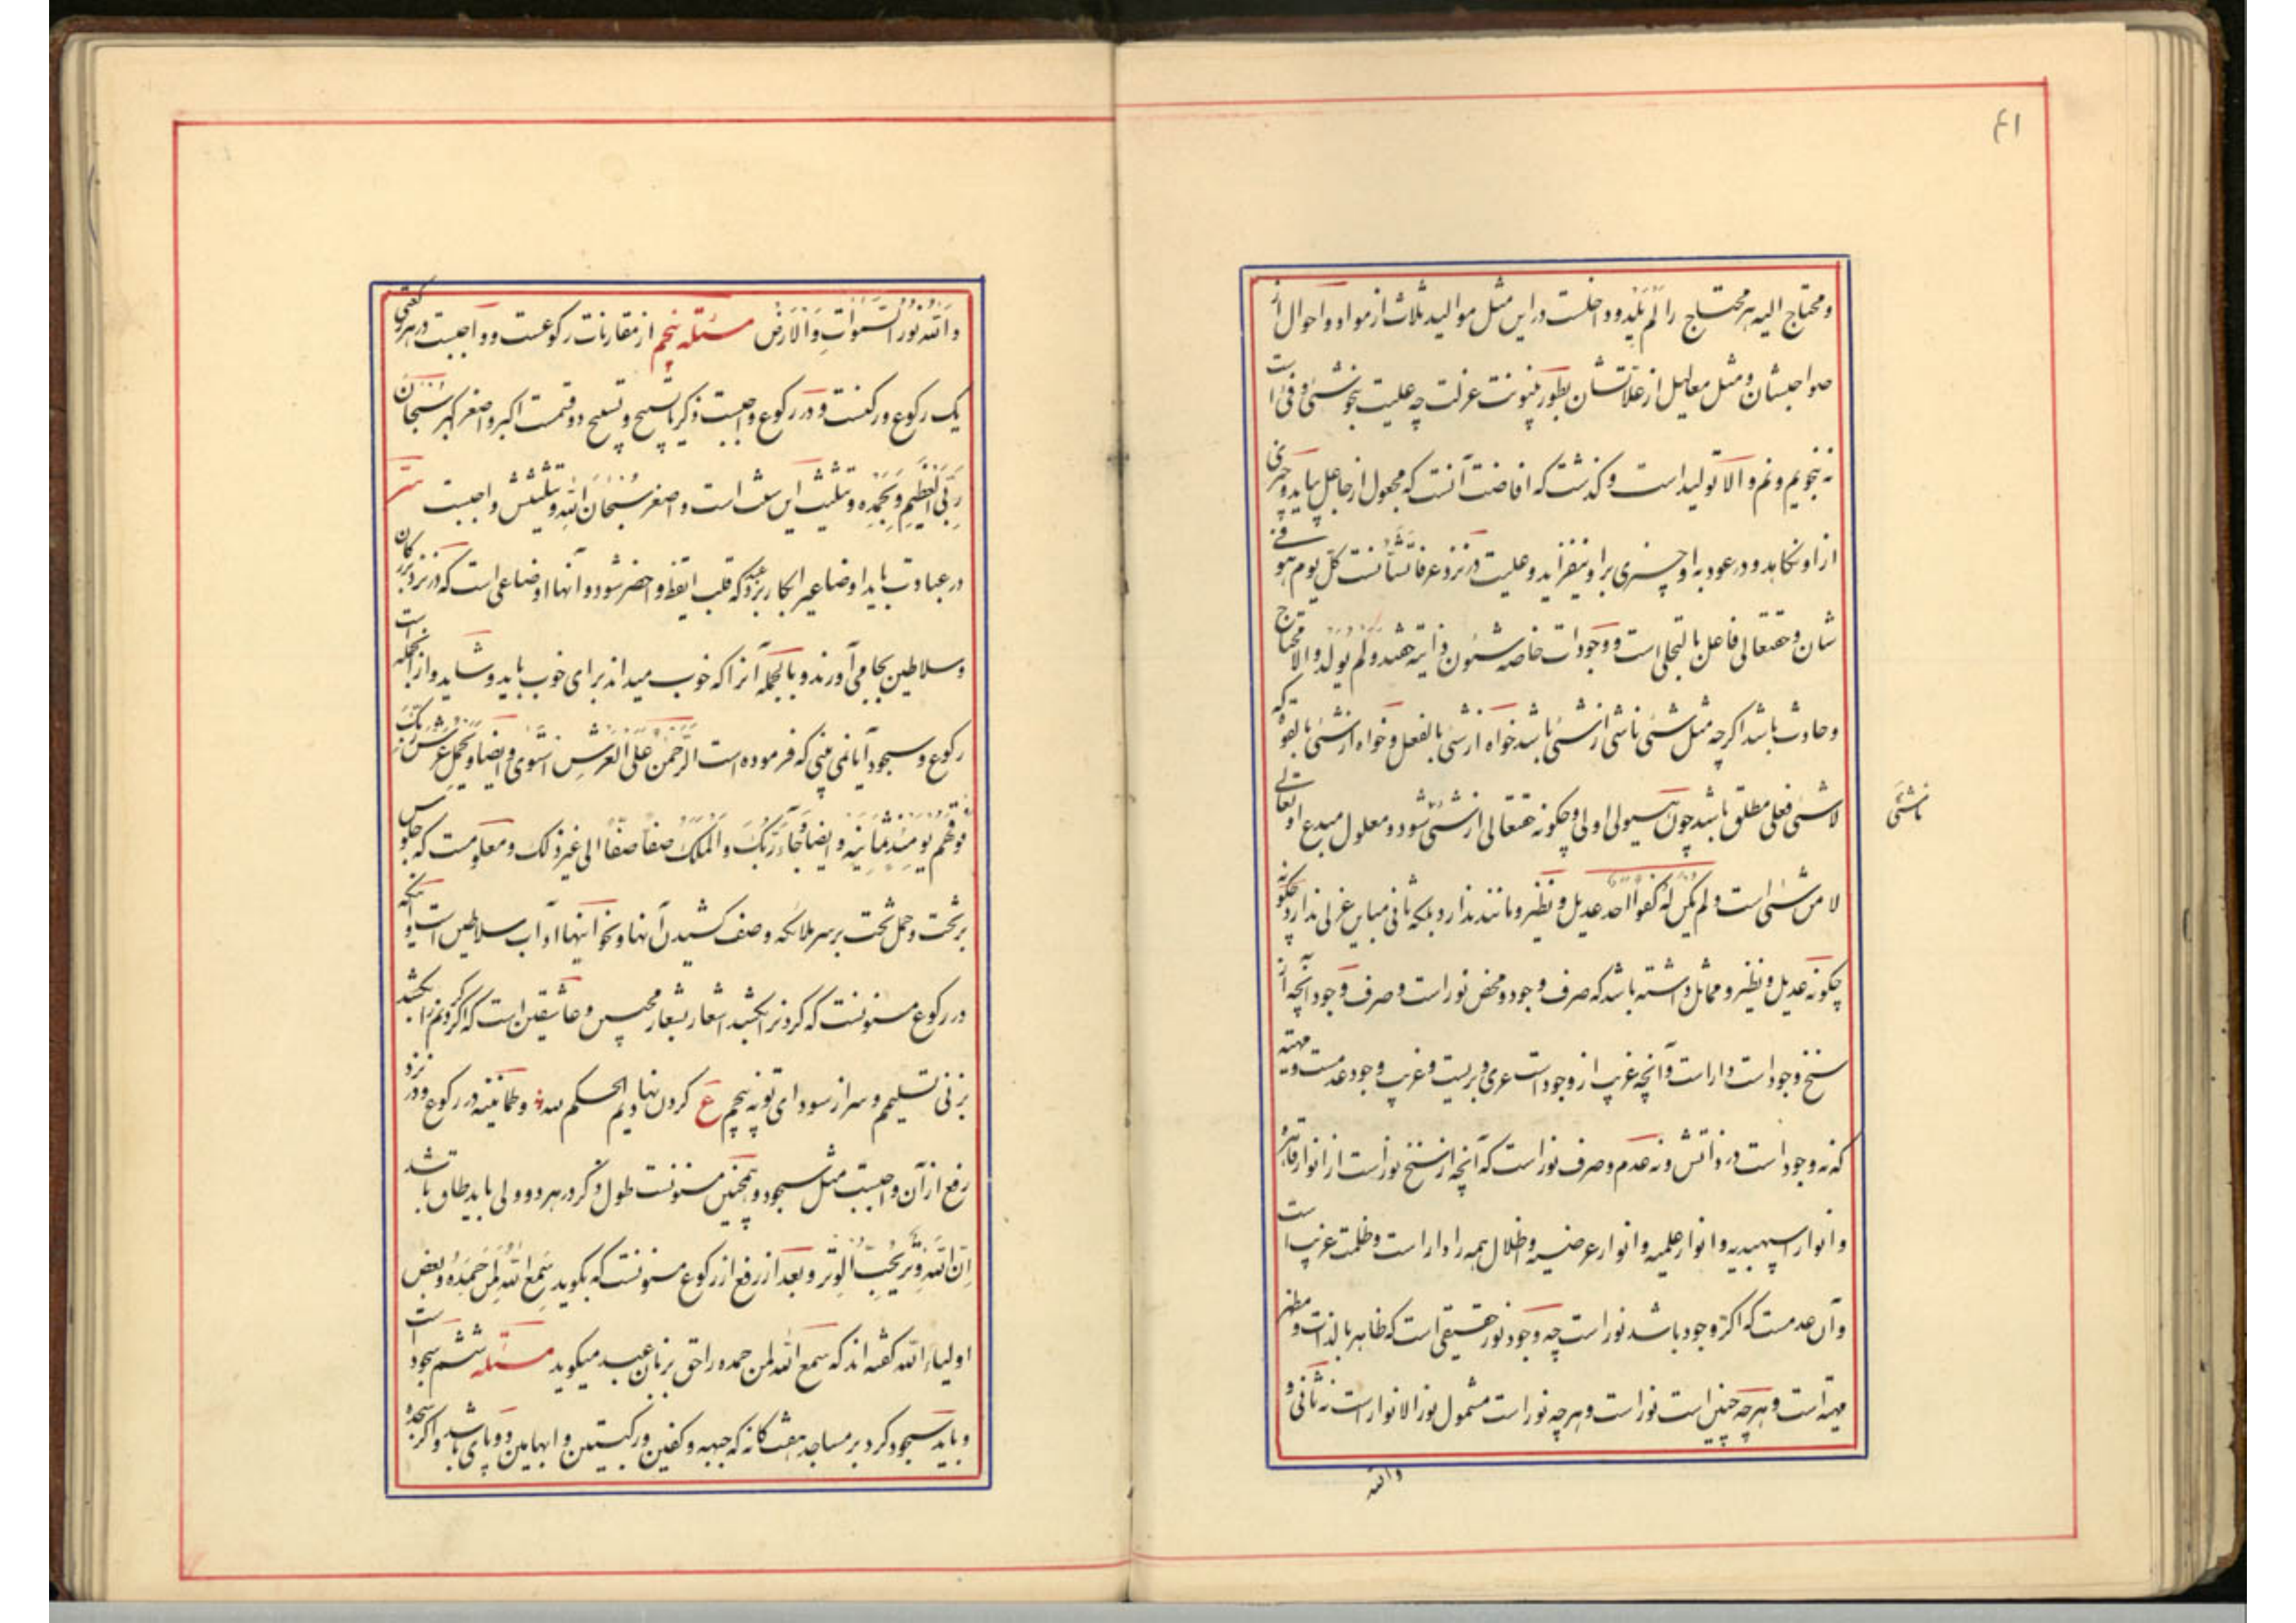 ۴۱
و محتاج الیه هر محتاج را لَم یَلِد و داخلست در این مثل موالید ثلاث از مواد و احوال از
صواحبشان و مثل معالیل از علاتشان بطور بینونت عزلت چه علیت بنحو شیء و فیء است
نه نجویم و نم و الا تولید است و گذشت که افاضت آنست که مجعول از جاعل بیاید و چیزی
از او نکاهد و در عود به او چیزی بر او نیفزاید و علیت در نزد عرفا تشأنست کل یوم هو فی
شان و حقتعالی فاعل بالتجلی است و وجودات خاصه شئون ذاتیه هستند و لَم یُولَد والا محتاج
و حادث باشد اگرچه مثل شیء ناشی از شیء باشد خواه از شیء بالفعل و خواه از شیء بالقوه که
لا شیء فعلی مطلق باشد چون هیولی اولی و چگونه حقتعالی از شیء شود و معلول مبدع او تعالی
ناشئی
لا من شیء است و لم یکن له کفوا احد عدیل و نظیر و مانند ندارد بلکه ثانی مباین عزلی ندارد چگونه
چگونه عدیل و نظیر و مماثل داشته باشد که صرف وجود و محض نور است و صرف وجود آنچه از
سنخ وجود است داراست و آنچه غریب از وجود است عری و بریست و غریب وجود عدمست و مهیته
که نه وجود است در ذاتش و نه عدم و صرف نور است که آنچه از سنخ نور است از انوار قاهره
و انوار اسپهبدیه و انوار علمیه و انوار عرضیه و اظلال همه را داراست و ظلمت غریب است
و آن عدمست که اگر وجود باشد نور است چه وجود نور حقیقی است که ظاهر بالذات و مظهر
مهیه است و هر چه چنین است نور است و هر چه نور است مشمول نور الانوار است نه ثانی و
والله
وَاللّه نُورُ السَّمواتِ وَالاَرض مسئله پنجم از مقارنات رکوعست و واجبست در هر رکعتی
یک رکوع و رکنست و در رکوع واجبست ذکر یا تسبیح و تسبیح دو قسمت اکبر و اصغر اکبر سُبحانَ
رَبِّیَ العَظیمِ وَبِحَمدِهِ و تثلیث این سنت است و اصغر سُبحانَ اللّهِ و تثلیثش واجبست سرّ
در عبادت باید اوضاعی را بکار برد عبد که قلب ایقظ و احضر شود و آنها اوضاعی است که در نزد بزرگان
و سلاطین بجا می‌آورند و بالجمله آنرا که خوب میداند برای خوب باید و شاید و از آنجمله است
رکوع و سجود آیا نمی بینی که فرموده است الرَّحمنُ عَلَی العَرشِ استَوی و ایضا و یَحمِلُ عَرشَ رَبِّکَ
فَوقَهُم یَومَئِذٍ ثَمانِیَه و ایضا وَجاءَ رَبُّکَ وَالمَلَکُ صَفّاً صَفّاً الی غیر ذلک و معلومست که جلوس
بر تخت و حمل تخت بر سر ملائکه و صف کشیدن آنها و نحو اینها آداب سلاطین است و آنکه
در رکوع مسنونست که گردنرا بکشید اشعار بشعار محبین و عاشقین است که اگر گردنم را بکشید
بزنی تسلیمم و سر از سودای تو نپیچم ع گردن نهادیم الحکم لله و طمانینه در رکوع و در نزد
رفع از آن واجبست مثل سجود و همچنین مسنونست طول ذکر در هر دو ولی باید طاق باشد
اِنَّ اللّهَ وِترٌ یُحِبُّ الوِتر و بعد از رفع از رکوع مسنونست که بگوید سَمِعَ اللّهُ لِمَن حَمِدَه و بعض
اولیاء اللّه گفته‌اند که سمع اللّه لمن حمده را حق بزبان عبد میگوید مسئله ششم سجود است
و باید سجود کرد بر مساجد هفت‌گانه که جبهه و کفین و رکبتین و ابهامین دو پای باشد و اگر سجده